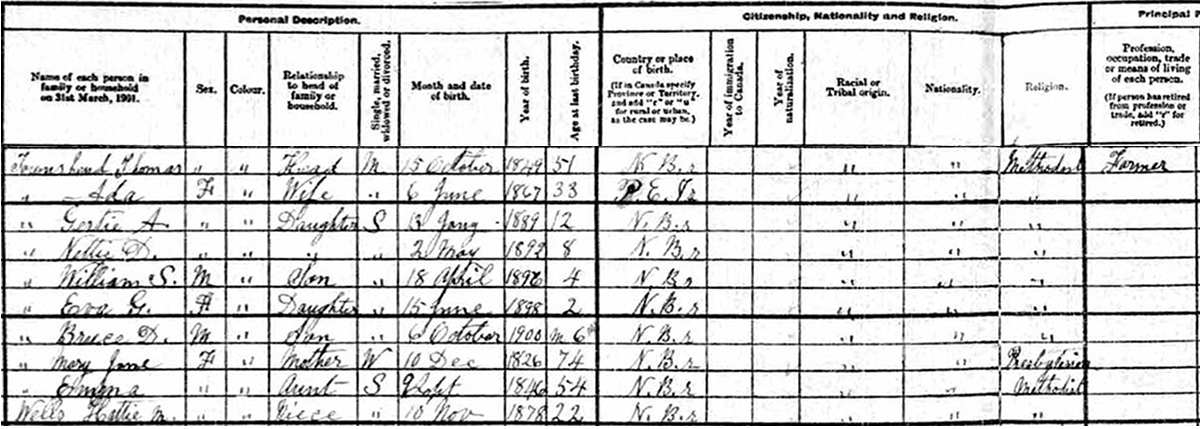 Personal Description. Citizenship, Nationality and Religion. Principal P
Name of each person in family or household on 31st March, 1901. Sex. Colour. Relationship to head of family or household. Single, married, widowed or divorced. Month and date of birth. Year of birth. Age at last birthday. Country or place of birth. (If in Canada specify Province or Territory, and add "r" or "u" for rural or urban, as the case may be.) Year of immigration to Canada. Year of naturalization. Racial or Tribal origin. Nationality. Religion. Profession, occupation, trade or means of living of each person. (If person has retired from profession or trade, add "r" for retired.)
Townshend Thomas " " Head M 15 October 1849 51 N. B. r " " Methodist Farmer
" Ada F " Wife " 6 June 1867 33 P. E. I r " " "
" Gertie A. " " Daughter S 13 Jany 1889 12 N. B. r " " "
" Nettie D. " " " " 2 May 1892 8 N. B. r " " "
" William S. M " Son " 18 April 1896 4 N. B. r " " "
" Eva G. F " Daughter " 15 June 1898 2 N. B. r " " "
" Bruce D. M " Son " 6 October 1900 M 6 N. B. r " " "
" Mary Jane F " Mother W 10 Dec 1826 74 N. B. r " " Presbyterian
" Emma " " Aunt S 9 Sept 1846 54 N. B. r " " Methodist
Wells Hattie M. " " Niece " 10 Nov 1878 22 N. B. r " " "